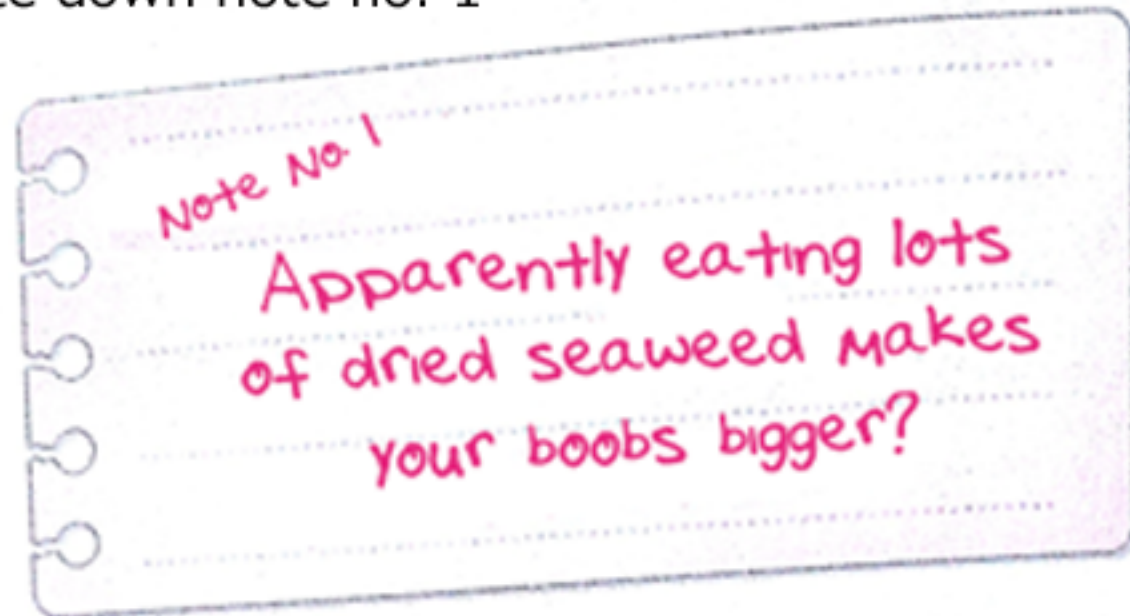 down note no. 1
Note No. 1
Apparently eating lots
of dried seaweed makes
your boobs bigger?